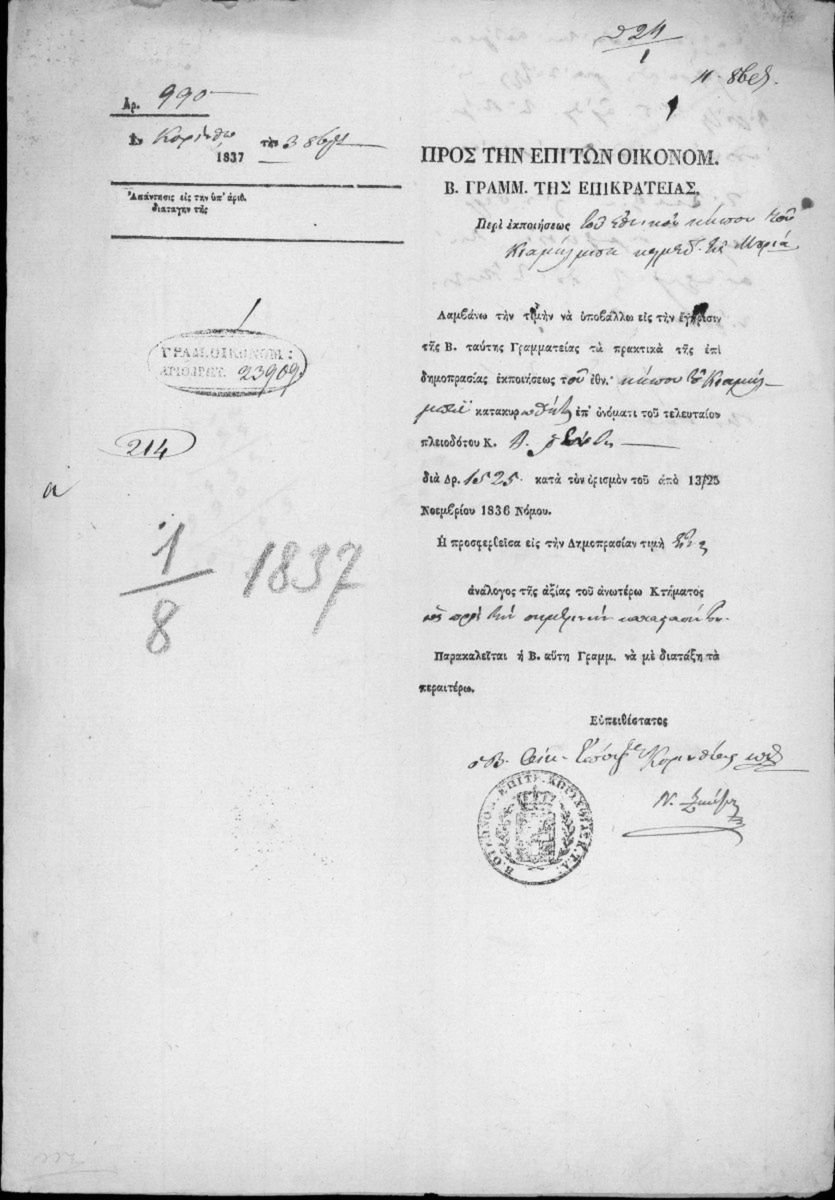 24
1
11 8βρ.
Αρ. 990
Ἐν Κορίνθῳ τὴν 3 8βρ.
1837
Ἀπάντησις εἰς τὴν ὑπ' ἀριθ.
διαταγὴν τῆς
ΠΡΟΣ ΤΗΝ ΕΠΙ ΤΩΝ ΟΙΚΟΝΟΜ.
Β. ΓΡΑΜΜ. ΤΗΣ ΕΠΙΚΡΑΤΕΙΑΣ.
Περὶ ἐκποιήσεως τοῦ ἐθνικοῦ κήπου τοῦ
Κιαμήλμπεη
Λαμβάνω τὴν τιμὴν νὰ ὑποβάλλω εἰς τὴν ἔγκρισιν
τῆς Β. ταύτης Γραμματείας τὰ πρακτικὰ τῆς ἐπὶ
δημοπρασίας ἐκποιήσεως τοῦ ἐθν. κήπου τοῦ Κιαμήλ-
μπεϊ κατακυρωθέντος ἐπ' ὀνόματι τοῦ τελευταίου
πλειοδότου Κ.
διὰ Δρ. 1525 κατὰ τὸν ὁρισμὸν τοῦ ἀπὸ 13/25
Νοεμβρίου 1836 Νόμου.
Ἡ προσφερθεῖσα εἰς τὴν Δημοπρασίαν τιμὴ
ἀνάλογος τῆς ἀξίας τοῦ ἀνωτέρω Κτήματος
ὡς πρὸς τὴν σημερινὴν κατάστασίν του.
Παρακαλεῖται ἡ Β. αὕτη Γραμμ. νὰ μὲ διατάξῃ τὰ
περαιτέρω.
Εὐπειθέστατος
ὁ Β. Οἰκ. Ἔφορος Κορινθίας
ΓΡΑΜ. ΟΙΚΟΝΟΜ:
ΑΡΙΘ. ΠΡΩΤ. 23909
214
α
1
8
1837